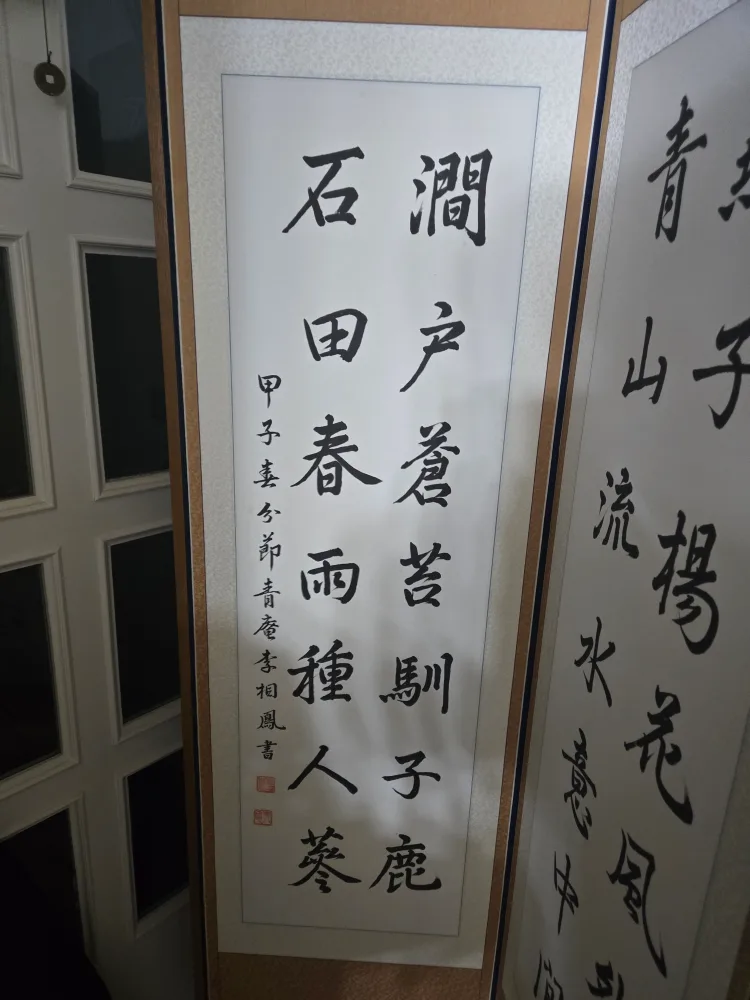 子楊花風
青山流水意中
澗户蒼苔馴子鹿
石田春雨種人蔘
甲子春分節青庵李相鳳書